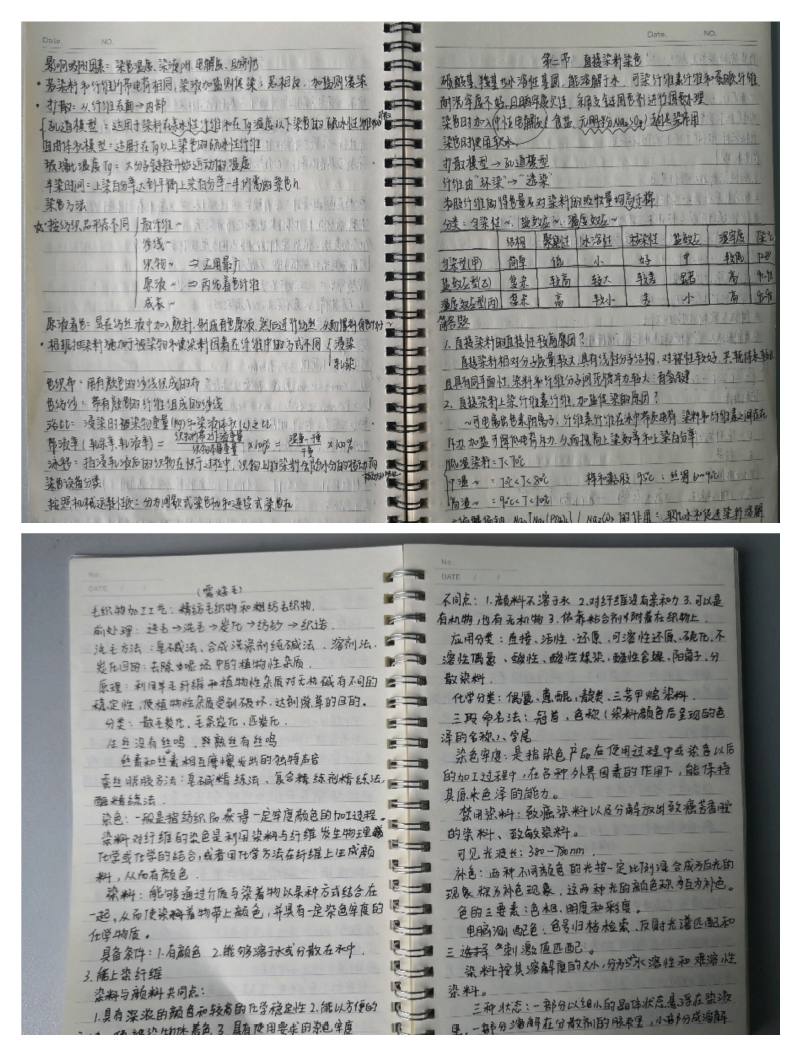 Date. NO.
影响吸附因素: 染色温度、染液pH、电解质、助剂
• 若染料和纤维所带电荷相同,染液加盐则促染;若相反,加盐则缓染
• 扩散: 从纤维表面→内部
孔道模型: 适用于染料在亲水性纤维和在Tg温度以下染色的疏水性纤维
自由体积模型: 适用于在Tg以上染色的疏水性纤维
玻璃化温度Tg: 大分子链段开始运动的温度
半染时间: 上染百分率达到平衡上染百分率一半所需的染色h
染色方法
按纺织品形态不同 散纤维~
纱线~
织物~ ⇒应用最广
原液~ ⇒丙纶着色纤维
成衣~
原液着色: 是在纺丝液中加入颜料,制成有色原液,
• 根据把染料施加于被染物和使染料固着在纤维中的方式不同 浸染
轧染
色织布: 用有颜色的纱线织成的布
色纺纱: 带有颜色的纤维组成的纱线
浴比: 浸染时被染物重量(kg)与染液体积(L)之比
带液率(轧余率、轧液率) = ×100% = ×100%
泳移: 指浸轧液后的织物在烘干过程中,织物上的染料会随水分的移动而
染色设备分类
按照机械运转性质: 分为间歇式染色机和连续式染色机
Date. NO.
第二节 直接染料染色
磺酸基、羧基等水溶性基团,能溶解于水,可染纤维素纤维和蛋白质纤维
染色时加入中性电解质(食盐、元明粉Na₂SO₄)起促染作用
染色时使用软水
扩散模型→孔道模型
纤维由“环染”→“透染”
分类: 匀染性~、盐效应~、温度效应~
结构 聚集性 水溶性 移染性 盐效应 湿牢度
匀染型(甲) 简单 低 小 好 较低
盐效应型(乙) 复杂 较高 较大 较差 显著 高
温度效应型(丙) 复杂 高 较小 差 小 高
简答题
1. 直接染料的直接性较高原因?
直接染料相对分子质量较大,具有线性分子结构,对称性较好,
且具同平面性,染料和纤维分子间范德华力较大;有氢键
2. 直接染料上染纤维素纤维,加盐促染的原因?
~可电离成色素阴离子,纤维素纤维在水中带负电荷,染料和纤维素之间存在
斥力,加盐可降低电荷斥力,从而提高上染速率和上染百分率
低温染料: T<70℃
中温~: 70℃<T<80℃
高温~: 90℃<T<100℃
No.
DATE / /
(需烧毛)
毛织物加工工艺: 精纺毛织物和粗纺毛织物.
前处理: 选毛→洗毛→炭化→纺纱→织造.
洗毛方法: 皂碱法、合成洗涤剂纯碱法、溶剂法.
炭化目的: 去除原毛中的植物性杂质.
原理: 利用羊毛纤维和植物性杂质对无机酸有不同的
稳定性,使植物性杂质受到破坏,达到除草的目的.
分类: 散毛炭化、毛条炭化、匹炭化.
生丝没有丝鸣,熟丝有丝鸣
丝素和丝素相互摩擦发出的独特声音
蚕丝脱胶方法: 皂碱精练法、复合精练剂精练法,
酶精练法.
染色: 一般是指纺织品获得一定牢度颜色的加工过程.
染料对纤维的染色是利用染料与纤维发生物理
化学或化学的结合,或者用化学方法在纤维上生成颜
料,从而有颜色.
染料: 能够通过介质与染着物以某种方式结合在
一起,从而使染料着物带上颜色,并具有一定染色牢度的
化学物质.
具备条件: 1.有颜色 2.能够溶于水或分散在水中.
3.能上染纤维
染料与颜料共同点:
1.具有深浓的颜色和较高的化学稳定性 2.能以方便的
使被染物体着色. 3.具有使用要求的染色牢度
No.
DATE / /
不同点: 1.颜料不溶于水 2.对纤维没有亲和力 3.可以是
有机物,也有无机物 3.依靠粘合剂才附着在织物上
应用分类: 直接、活性、还原、可溶性还原、硫化、不
溶性偶氮、酸性、酸性媒染、酸性含媒、阳离子、分
散染料.
化学分类: 偶氮、蒽醌、靛类、三芳甲烷染料.
三段命名法: 冠首、色称(染料颜色后呈现的色
泽的名称)、字尾
染色牢度: 是指染色产品在使用过程中或染色以后
的加工过程中,在各种外界因素的作用下,能保持
其原来色泽的能力.
禁用染料: 致癌染料以及分解放出致癌芳香胺
的染料、致敏染料.
可见光波长: 380-780nm.
补色: 两种不同颜色的光按一定比例混合成为白光的
现象称为补色现象,这两种光的颜色称为互为补色.
色的三要素: 色相、明度和彩度.
电脑测配色: 色号归档检索、反射光谱匹配和
三刺激值匹配.
染料按其溶解度的大小,分为水溶性和难溶性
染料.
三种状态: 一部分以细小的晶体状态悬浮在染液
里,一部分溶解在分散剂的胶束里,小部分成溶解